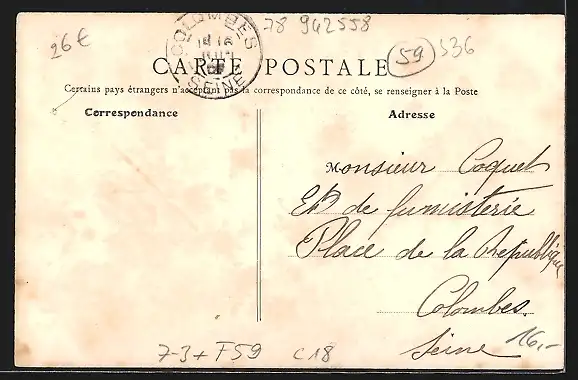 26€
COLOMBES
SEINE
78 942558
59
536
CARTE POSTALE
Certains pays étrangers n'acceptant pas la correspondance de ce côté, se renseigner à la Poste
Correspondance
Adresse
Monsieur Coquet
de fumisterie
Place de la République
Colombes.
Seine
16,-
7-3+F59 C18